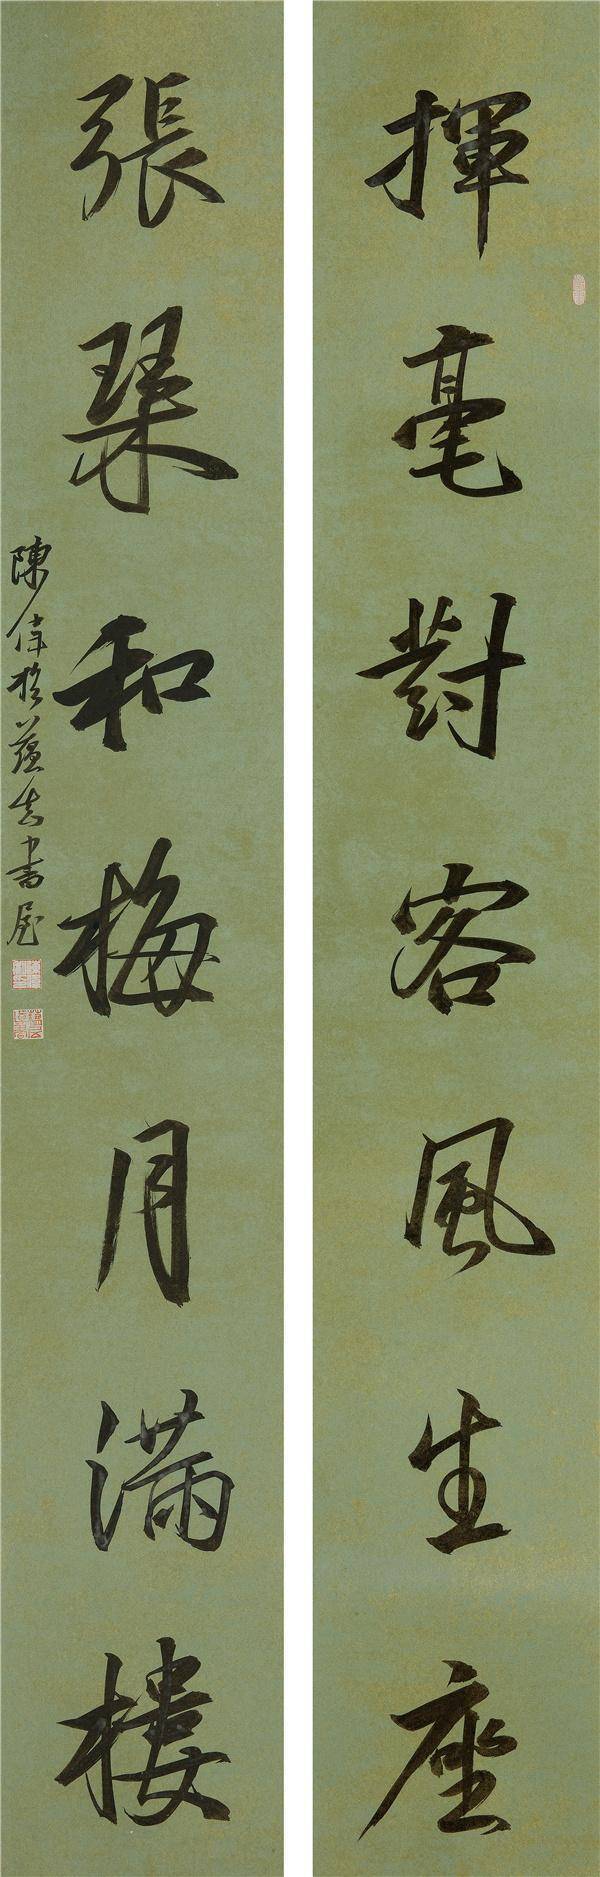 揮毫對客風生座
張琴和梅月滿樓
陳偉於蘊真書屋